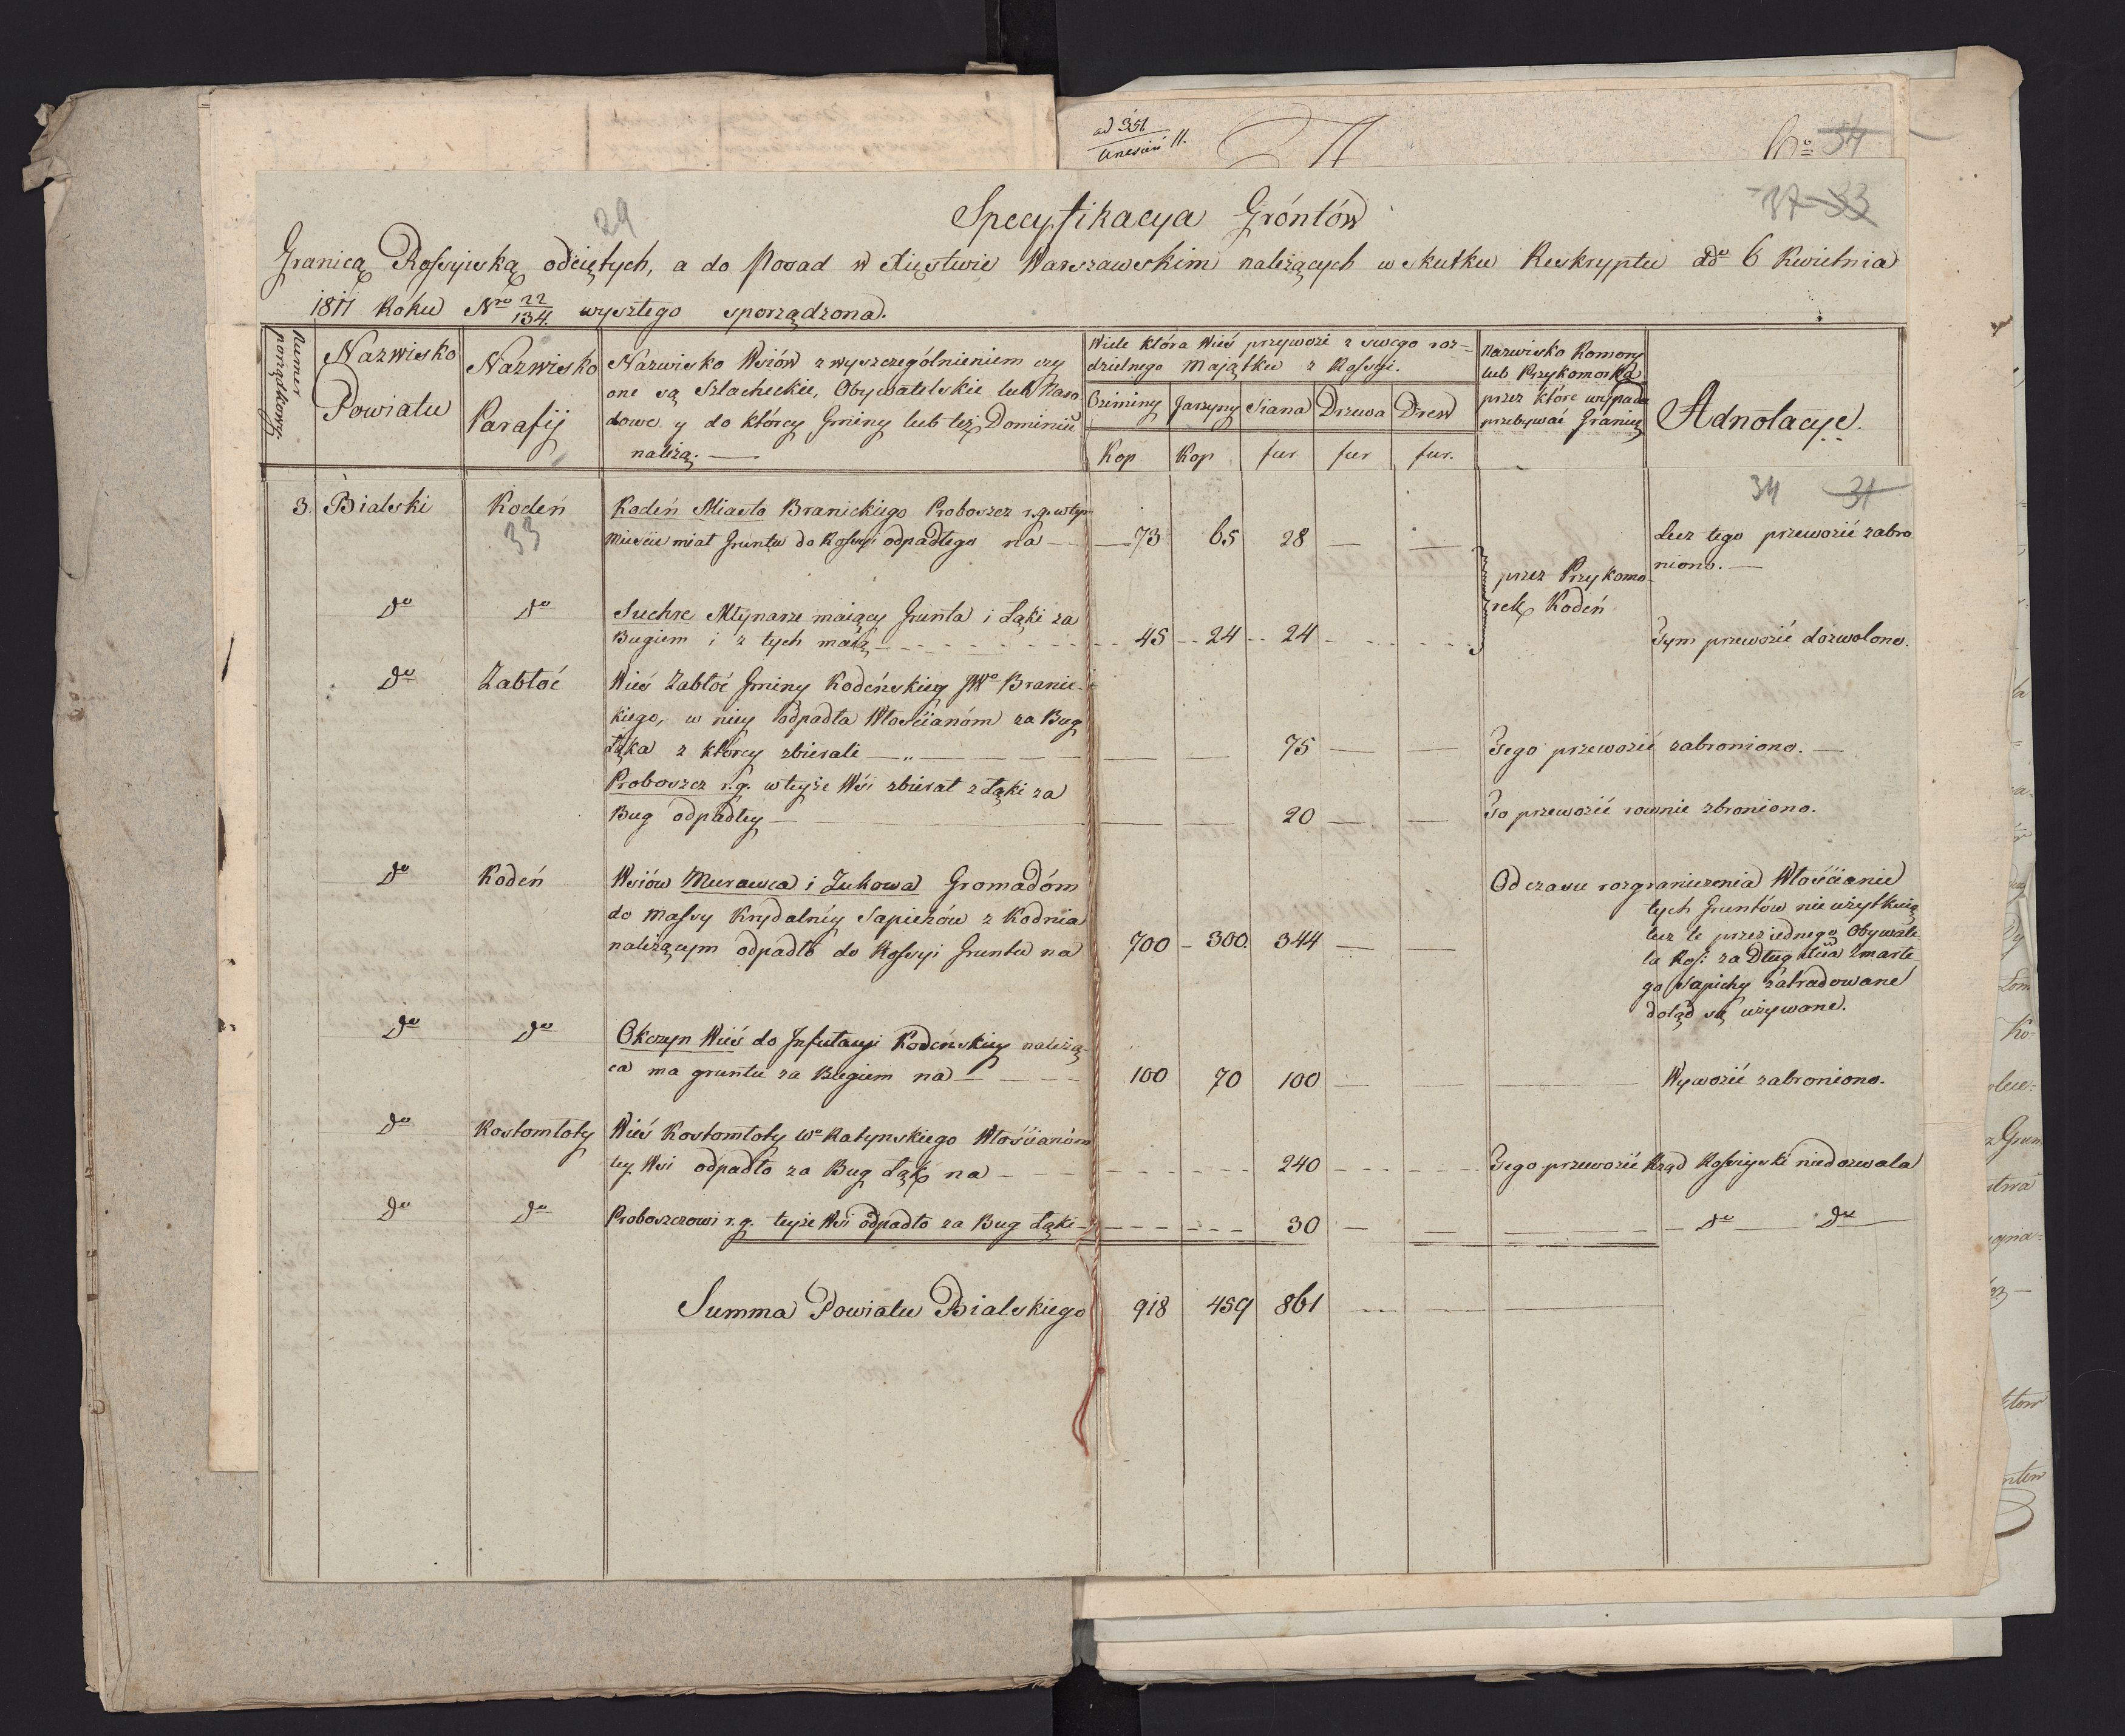 ad 356
Uniesień 11.
No 34
37 33
29
Specyfikacya Gróntów
Granicą Rossyiską odciętych, a do Posad w Xięstwie Warszawskim należących w skutku Reskryptu ddo 6 Kwietnia
1811 Roku Nro 22/134 wyszłego sporządzona.
Numer porządkowy.
Nazwisko Powiatu
Nazwisko Parafij
Nazwisko Wsiów z wyszczególnieniem czy
one są Szlacheckie, Obywatelskie lub Naro
dowe y do którey Gminy lub też Dominiu
należą.
Wiele która Wieś przywozi z swego roz-
dzielnego Majątku z Rossyi.
Oziminy Jarzyny Siana Drzewa Drew
Kop Kop fur fur fur.
Nazwisko Komory
lub Przykomorka
przez które wypada
przebywać Granicę
Adnotacye.
34 31
3. Bialski Kodeń Kodeń Miasto Branickiego Proboszcz r.g. w tym
33
Mieście miał Gruntu do Rossyi odpadłego na — 73 65 28 — —
Lecz tego przewozić zabro
niono. —
przez Przykomo-
rek Kodeń
do do Suchre Młynarze maiący Grunta i Łąki za
Bugiem i z tych maią 45 24 24 Tym przewozić dozwolono.
do Zabłoć Wieś Zabłoć Gminy Kodeńskiey JWo Branic-
kiego, w niey odpadła Włościanóm za Bug
Łąka z którey zbierali — „ — 75 — — Tego przewozić zabroniono. —
Proboszcz r.g. w teyże Wsi zbierał z Łąki za
Bug odpadłey — 20 — — To przewozić rownie zbroniono.
do Kodeń Wsiów Murawca i Żukowa Gromadóm
do Massy Krydalney Sapiehów z Kodnia
należącym odpadło do Rossyi Gruntu na 700 — 300. 344 — —
Od czasu rozgraniczenia Włościanie
tych Gruntów nie użytkuią
lecz te przez iednego Obywate
la Ross: za Dług Xcia Zmarłe
go Sapiehy zatradowane
dotąd są używane.
do do Okczyn Wieś do Infułacyi Kodeńskiey należą-
ca ma gruntu za Bugiem na — 100 70 100 — Wywozić zabroniono.
do Kostomłoty Wieś Kostomłoty Wo Ratynskiego Włościanóm
tey Wsi odpadło za Bug Łąk na — 240 Tego przewozić Rząd Rossyiski niedozwala
do do Proboszczowi r.g. teyże Wsi odpadło za Bug Łąki — 30 — do do
Summa Powiatu Bialskiego 918 459 861